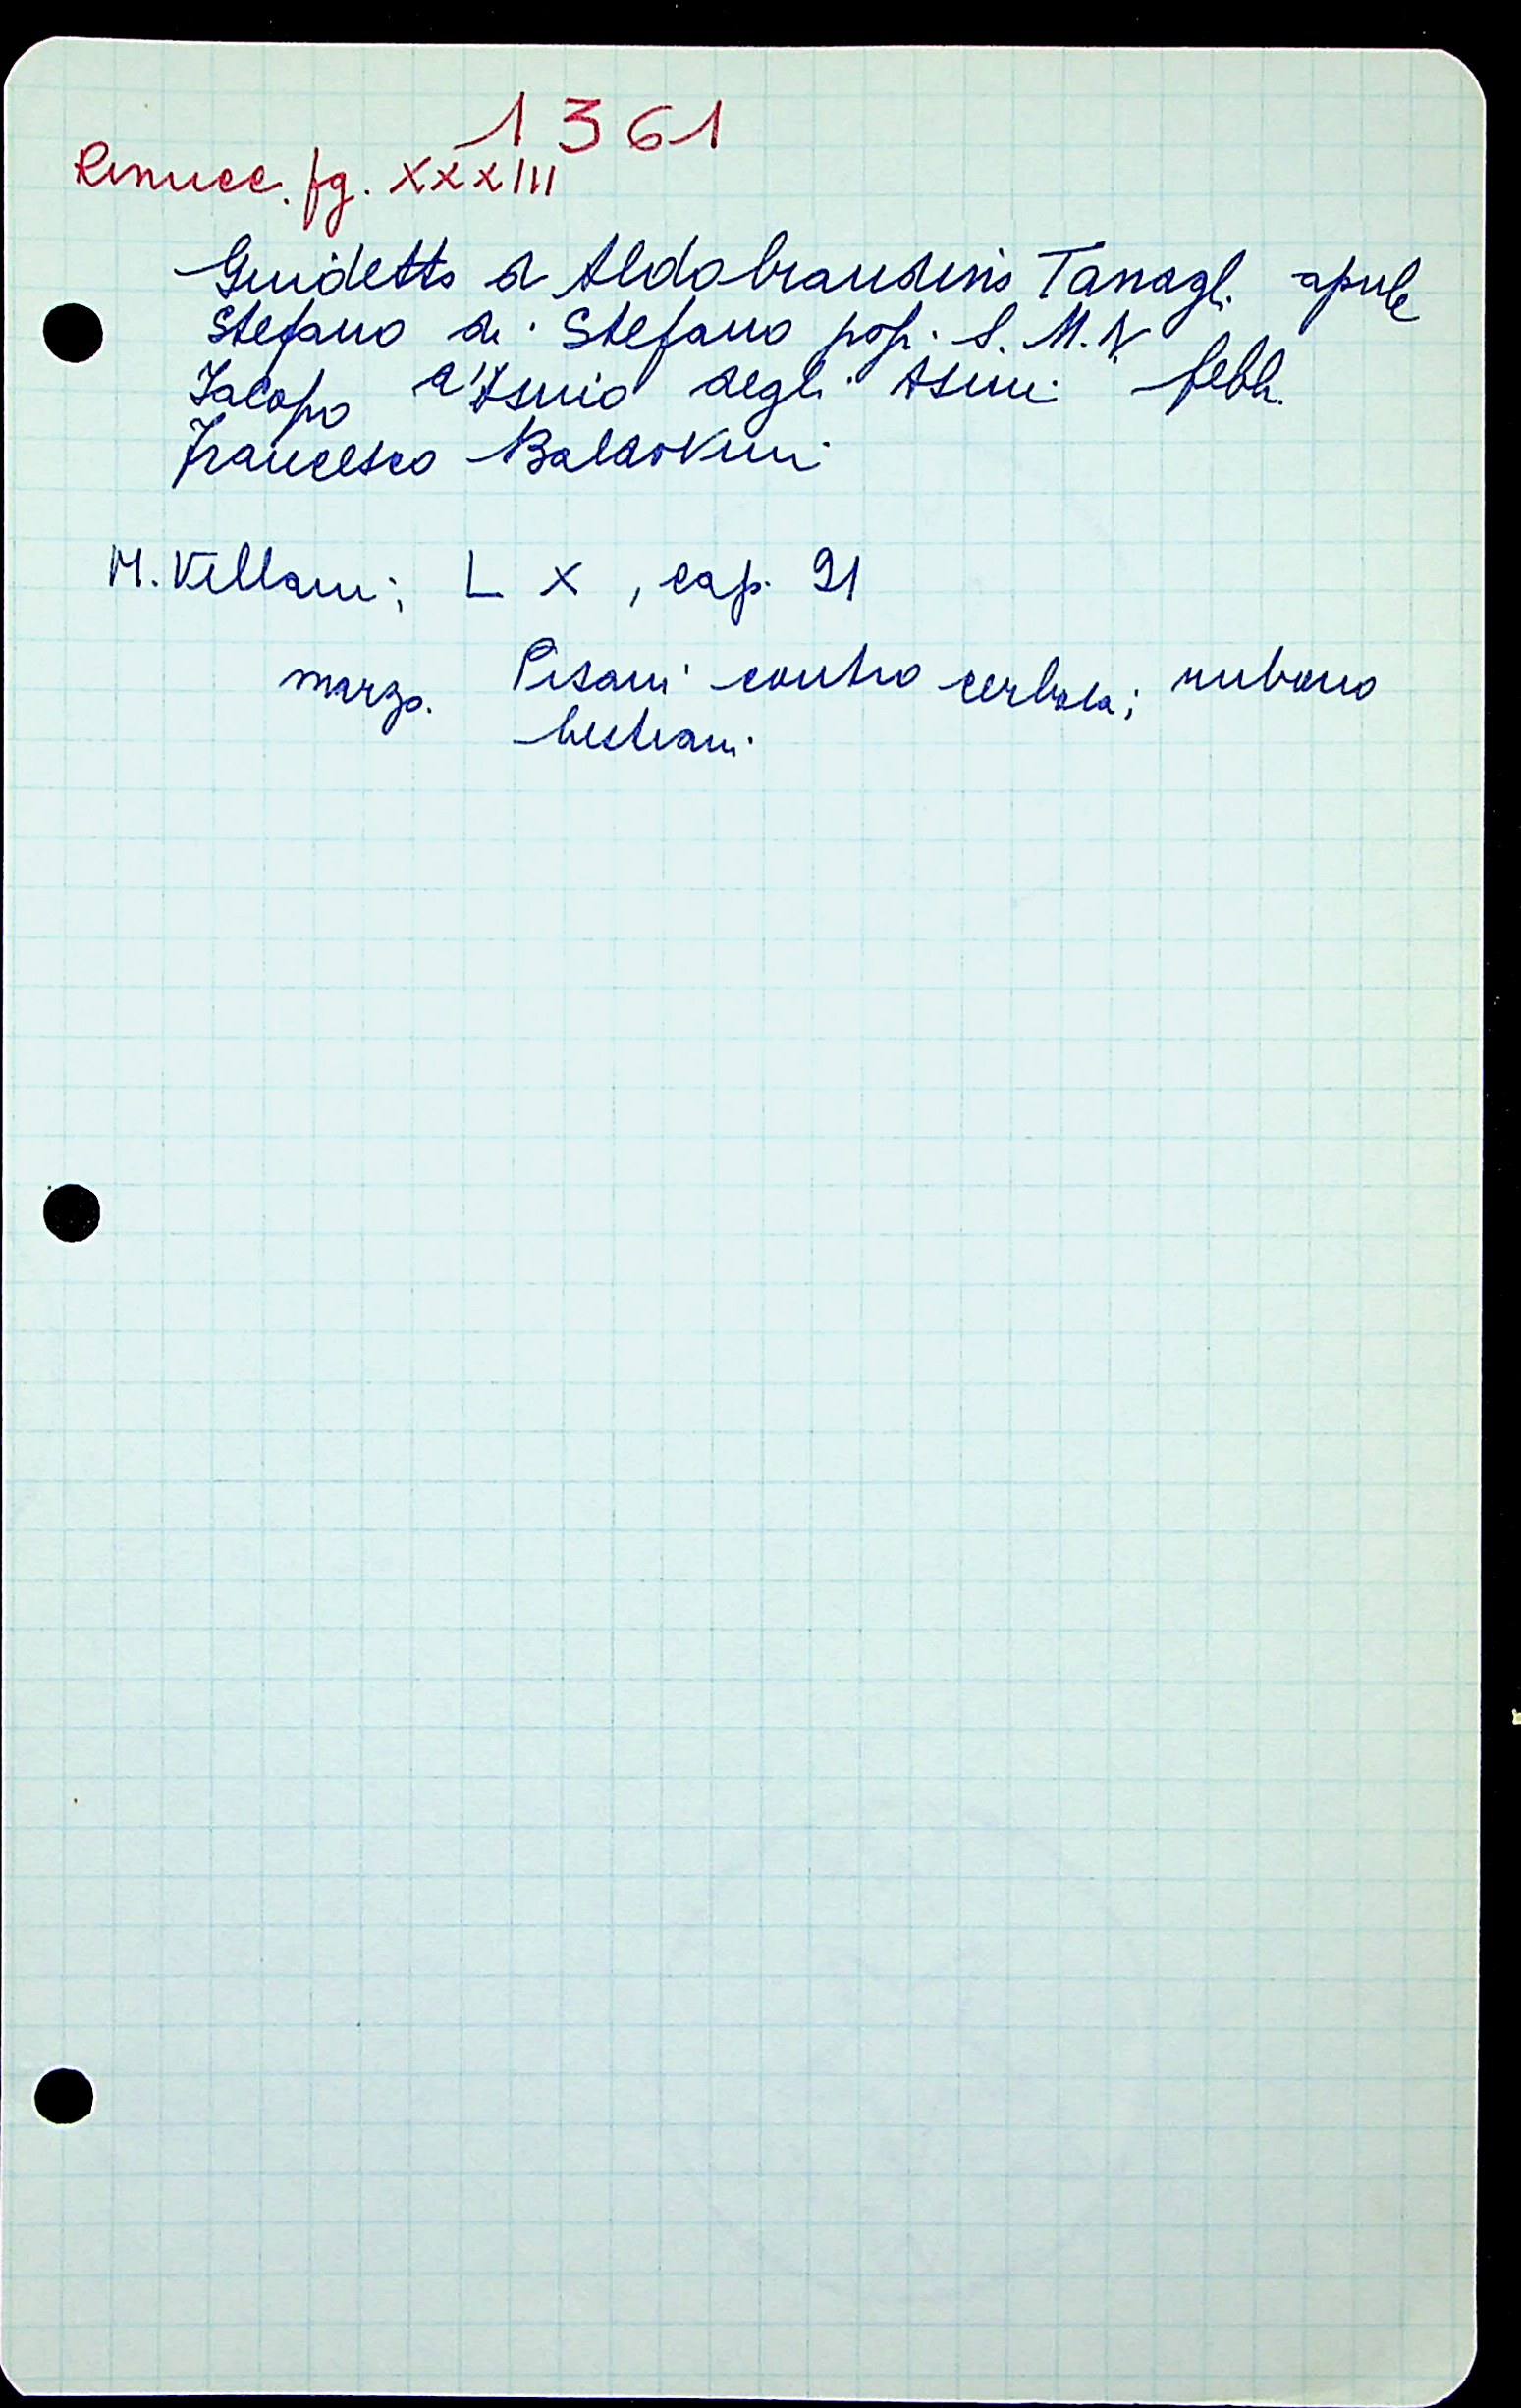 1361
Rinucc. fg. XXXIII
Guidetto di Aldobrandino Tanagl. aprile
Stefano di Stefano pop. S. M. N
Jacopo degli Asini febb.
Francesco Baldovini
M. Villani; L X, cap. 21
marzo. Pisani contro cerbaia; rubano
bestiam.